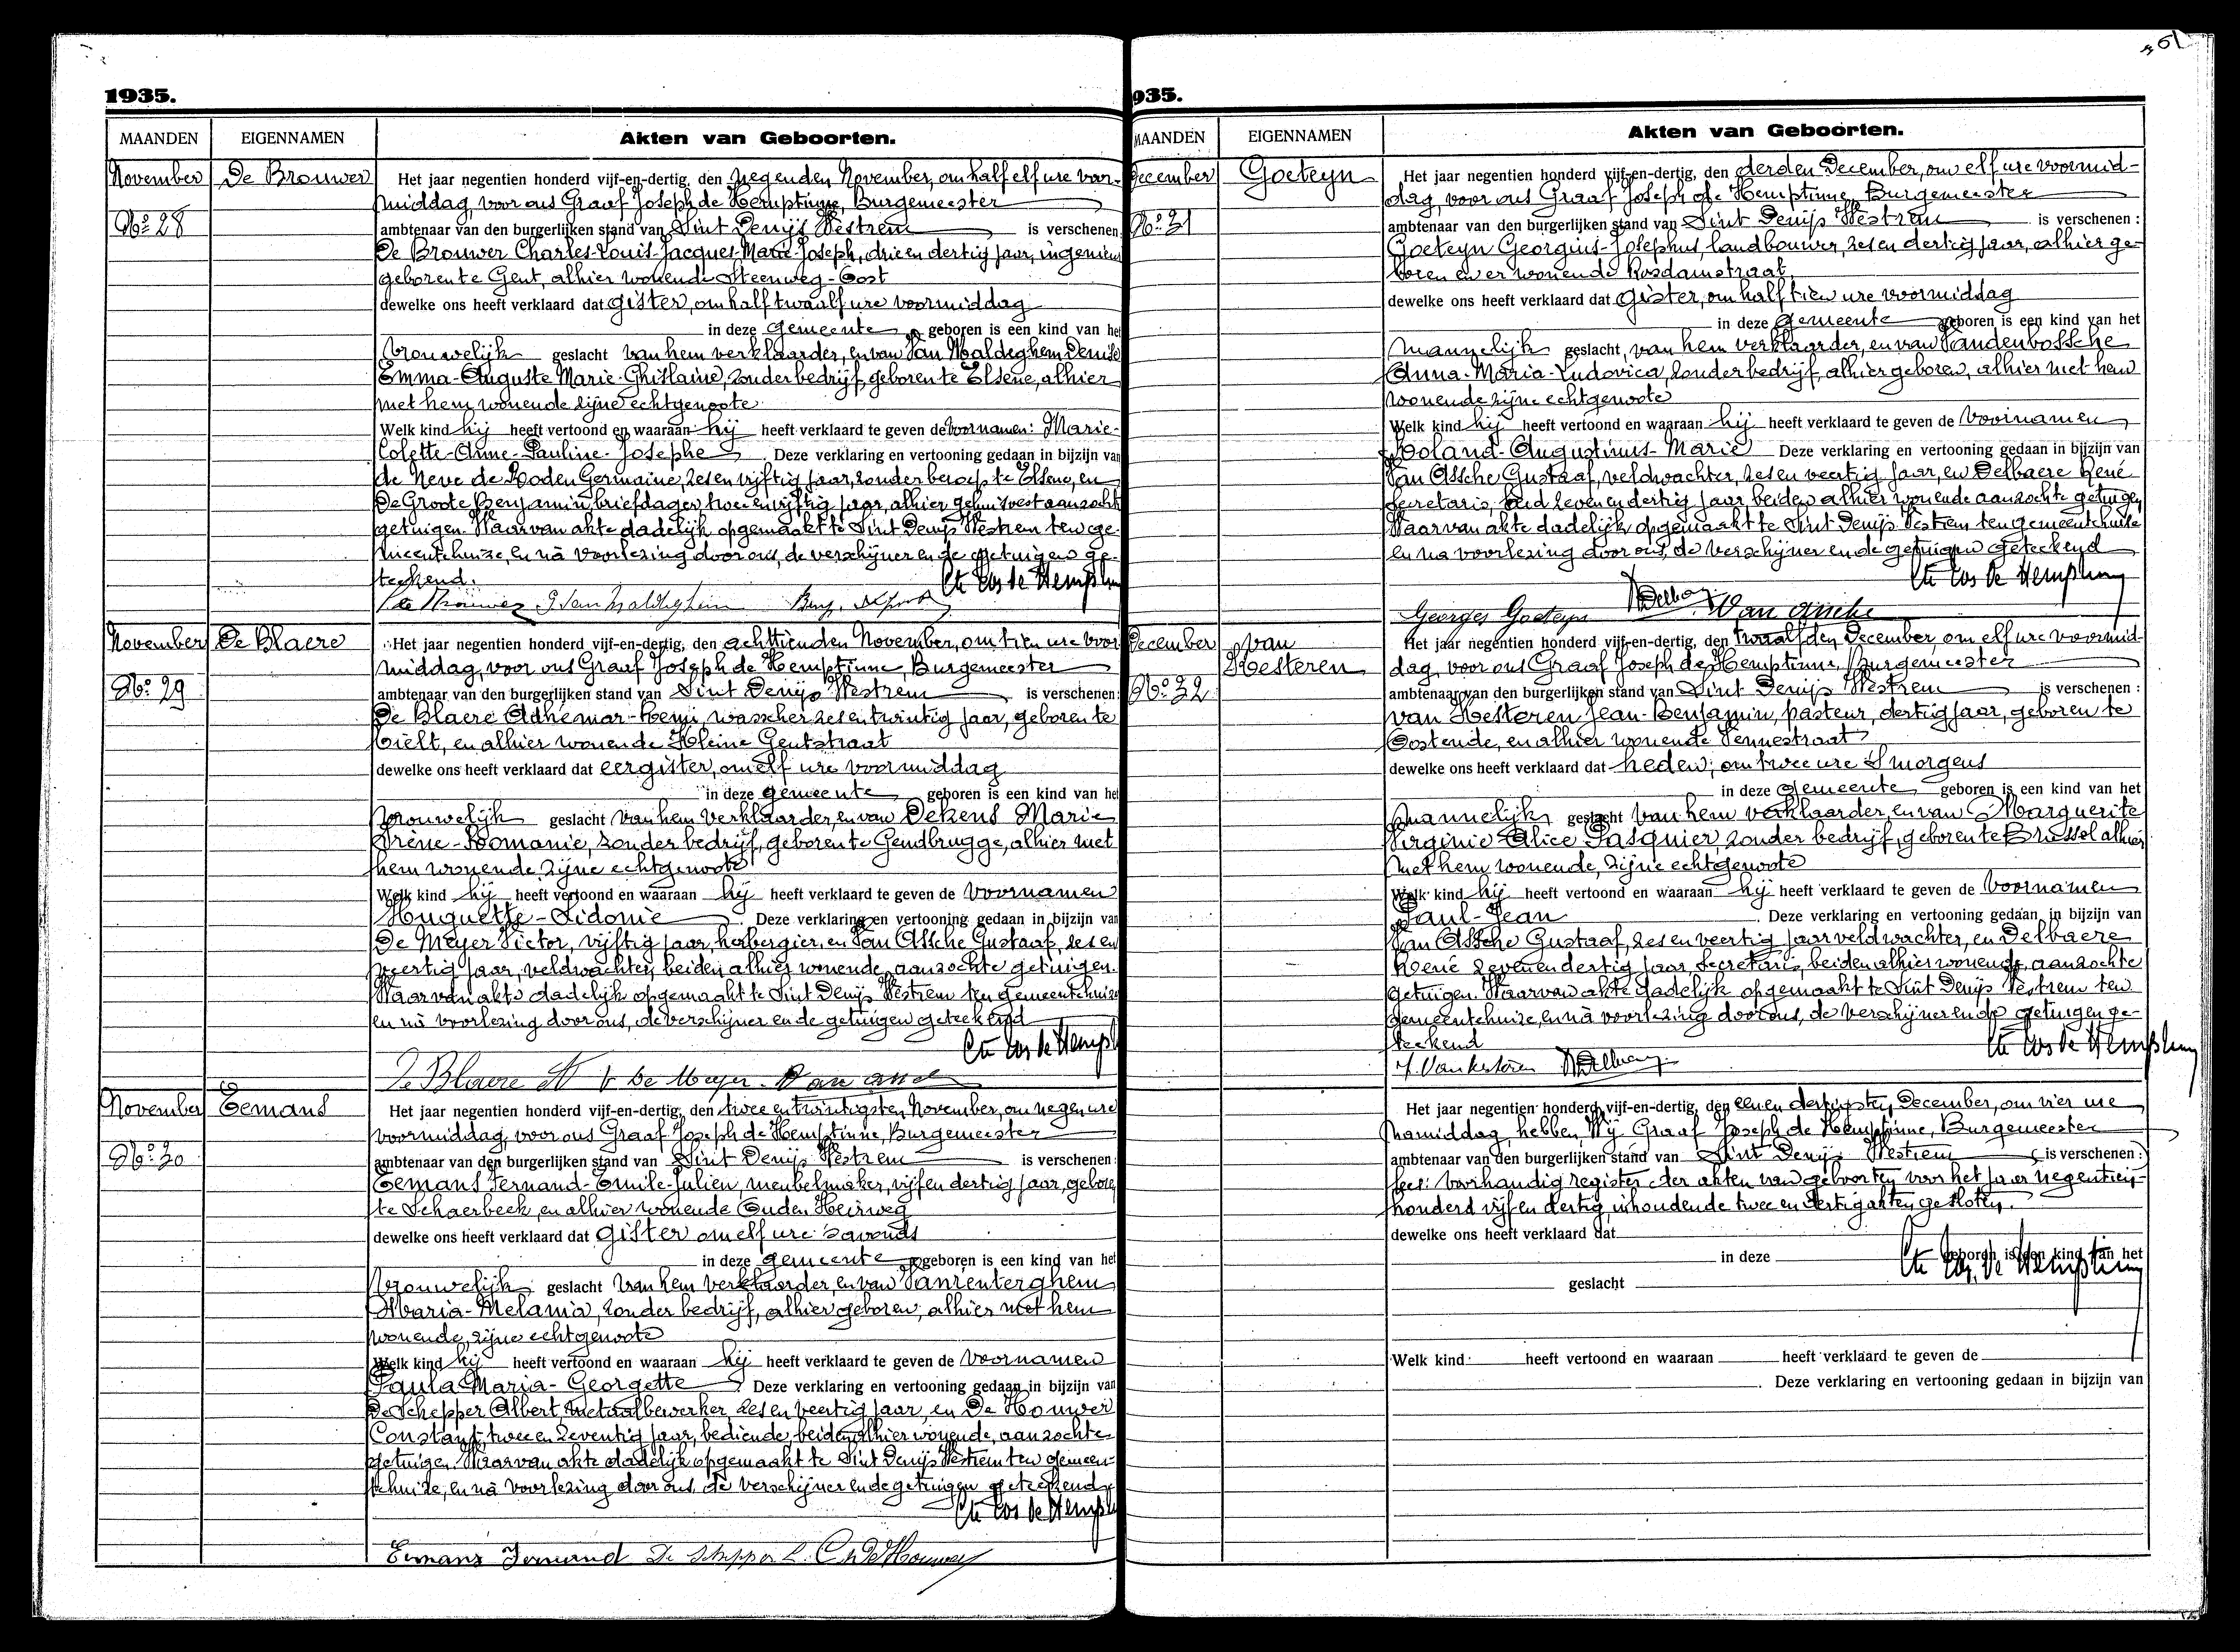 1935.
MAANDEN EIGENNAMEN Akten van Geboorten.
November De Brouwer
No. 28
Het jaar negentien honderd vijf-en-dertig, den negenden November, om half elf ure voor-
middag, voor ons Graaf Joseph de Hemptinne, Burgemeester
ambtenaar van den burgerlijken stand van Sint Denijs Westrem is verschenen
De Brouwer Charles-Louis-Jacques-Marie-Joseph, drie en dertig jaar, ingenieur
geboren te Gent, alhier wonende Steenweg-Oost
dewelke ons heeft verklaard dat gister, om half twaalf ure voormiddag
in deze gemeente geboren is een kind van het
vrouwelijk geslacht van hem verklaarder, en van Van Maldeghem Denise
Emma-Auguste Marie-Ghislaine, zonder bedrijf, geboren te Elsene, alhier
met hem wonende zijne echtgenoote
Welk kind hij heeft vertoond en waaraan hij heeft verklaard te geven de voornamen: Marie-
Colette-Anne-Pauline-Josephe Deze verklaring en vertooning gedaan in bijzijn van
de Neve de Roden Germaine, zes en vijftig jaar, zonder beroep te Elsene, en
De Groote Benjamin, briefdager, twee en vijftig jaar, alhier gehuisvest aanzochte
getuigen. Waarvan akte dadelijk opgemaakt te Sint Denijs Westrem ten ge-
meentehuize, en nà voorlezing door ons, de verschijner en de getuigen ge-
teekend.
Cte Jos de Hemptin
November De Blaere
No. 29
Het jaar negentien honderd vijf-en-dertig, den achttienden November, om tien ure voor
middag, voor ons Graaf Joseph de Hemptinne, Burgemeester
ambtenaar van den burgerlijken stand van Sint Denijs Westrem is verschenen:
De Blaere Adhemar-Remi, wasscher zes en twintig jaar, geboren te
Tielt, en alhier wonende Kleine Gentstraat
dewelke ons heeft verklaard dat eergister, om elf ure voormiddag
in deze gemeente geboren is een kind van het
vrouwelijk geslacht van hem verklaarder, en van Dekens Marie
Irène-Romanie, zonder bedrijf, geboren te Gendbrugge, alhier met
hem wonende zijne echtgenoote
Welk kind hij heeft vertoond en waaraan hij heeft verklaard te geven de voornamen
Huguette-Sidonie Deze verklaring en vertooning gedaan in bijzijn van
De Meyer Victor, vijftig jaar, herbergier, en Van Assche Gustaaf, zes en
veertig jaar, veldwachter, beiden alhier wonende, aanzochte getuigen.
Waarvan akte dadelijk opgemaakt te Sint Denijs Westrem ten gemeentehuize
en nà voorlezing door ons, de verschijner en de getuigen geteekend
Cte Jos de Hempt
De Blaere A V. De Meyer.
November Eemans
No. 30
Het jaar negentien honderd vijf-en-dertig, den twee en twintigsten November, om negen ure
voormiddag, voor ons Graaf Joseph de Hemptinne, Burgemeester
ambtenaar van den burgerlijken stand van Sint Denijs Westrem is verschenen:
Eemans Fernand-Emile-Julien, meubelmaker, vijf en dertig jaar, geboren
te Schaerbeek, en alhier wonende Ouden Heirweg
dewelke ons heeft verklaard dat gister om elf ure 's avonds
in deze gemeente geboren is een kind van het
vrouwelijk geslacht van hem verklaarder, en van Vanrenterghem
Maria-Melania, zonder bedrijf, alhier geboren, alhier met hem
wonende, zijne echtgenoote
Welk kind hij heeft vertoond en waaraan hij heeft verklaard te geven de voornamen
Paula Maria-Georgette Deze verklaring en vertooning gedaan in bijzijn van
De Schepper Albert, metaalbewerker, zes en veertig jaar, en De Houwer
Constant, twee en zeventig jaar, bediende, beiden alhier wonende, aanzochte
getuigen. Waarvan akte dadelijk opgemaakt te Sint Denijs Westrem ten gemeen-
tehuize, en nà voorlezing door ons, de verschijner en de getuigen geteekend
Cte Jos de Hempt
Eemans Fernand De Schepper A. C. De Houwer
935.
MAANDEN EIGENNAMEN Akten van Geboorten.
December Goeteyn
No. 31
Het jaar negentien honderd vijf-en-dertig, den derden December, om elf ure voormid-
dag, voor ons Graaf Joseph de Hemptinne, Burgemeester
ambtenaar van den burgerlijken stand van Sint Denijs Westrem is verschenen:
Goeteyn Georgius-Josephus, landbouwer, zes en dertig jaar, alhier ge-
boren en er wonende Rosdamstraat,
dewelke ons heeft verklaard dat gister, om half tien ure voormiddag
in deze gemeente geboren is een kind van het
mannelijk geslacht, van hem verklaarder, en van Vandenbossche
Anna-Maria-Ludovica, zonder bedrijf, alhier geboren, alhier met hem
wonende zijne echtgenoote
Welk kind hij heeft vertoond en waaraan hij heeft verklaard te geven de voornamen
Roland-Augustinus-Marie Deze verklaring en vertooning gedaan in bijzijn van
Van Assche Gustaaf, veldwachter, zes en veertig jaar, en Delbaere René
secretaris, oud zeven en dertig jaar, beiden alhier wonende aanzochte getuigen
Waarvan akte dadelijk opgemaakt te Sint Denijs Westrem ten gemeentehuize
en na voorlezing door ons, de verschijner en de getuigen geteekend
Cte Jos de Hemptinne
Georges Goeteyn Van Assche
December Van
Kesteren
No. 32
Het jaar negentien honderd vijf-en-dertig, den twaalfden December, om elf ure voormid-
dag, voor ons Graaf Joseph de Hemptinne, Burgemeester
ambtenaar van den burgerlijken stand van Sint Denijs Westrem is verschenen:
van Kesteren Jean-Benjamin, pasteur, dertig jaar, geboren te
Oostende, en alhier wonende Pennestraat
dewelke ons heeft verklaard dat heden, om twee ure 's morgens
in deze gemeente geboren is een kind van het
mannelijk geslacht van hem verklaarder, en van Marguerite
Virginie Alice Pasquier, zonder bedrijf, geboren te Brussel alhier
met hem wonende, zijne echtgenoote
Welk kind hij heeft vertoond en waaraan hij heeft verklaard te geven de voornamen
Paul-Jean Deze verklaring en vertooning gedaan in bijzijn van
Van Assche Gustaaf, zes en veertig jaar veldwachter, en Delbaere
René zeven en dertig jaar, secretaris, beiden alhier wonende, aanzochte
getuigen. Waarvan akte dadelijk opgemaakt te Sint Denijs Westrem ten
gemeentehuize, en nà voorlezing door ons, de verschijner en de getuigen ge-
teekend
Cte Jos de Hemptinne
J. Van Kesteren
Het jaar negentien honderd vijf-en-dertig, den een en dertigsten December, om vier ure
namiddag, hebben Wij Graaf Joseph de Hemptinne, Burgemeester
ambtenaar van den burgerlijken stand van Sint Denijs Westrem is verschenen:
lees: voorhandig register der akten van geboorten voor het jaar negentien-
honderd vijf en dertig, inhoudende twee en dertig akten gesloten.
dewelke ons heeft verklaard dat
in deze geboren is een kind van het
Cte Jos. de Hemptinne
geslacht
Welk kind heeft vertoond en waaraan heeft verklaard te geven de
Deze verklaring en vertooning gedaan in bijzijn van